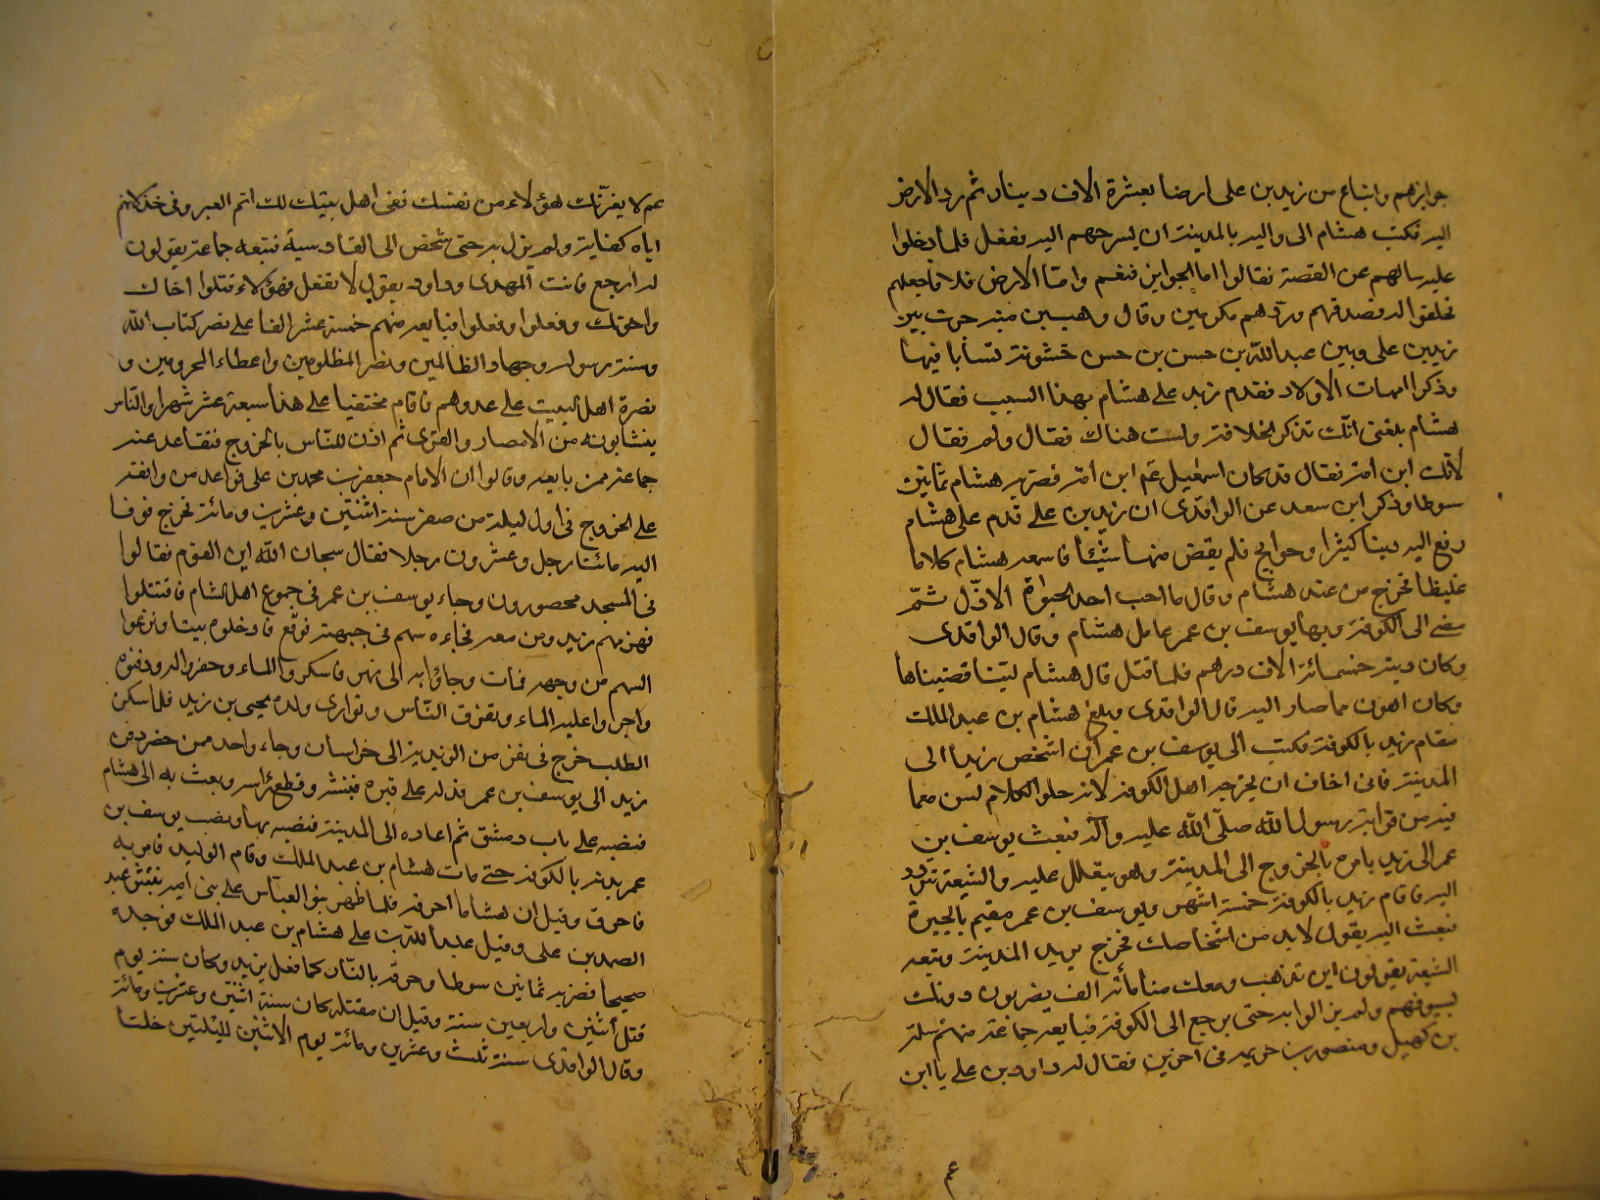 جوايزهم وابتاع من زيد بن على ارضا بعشرة الاف دينار ثم رد الارض
اليه فكتب هشام الى واليه بالمدينة ان يسرحهم اليه ففعل فلما دخلوا
عليه سالهم عن القصة فقالوا اما الجوايز فنعم واما الارض فلا فاحلفهم
فحلفوا له فصدقهم وردهم مكرمين وقال وهب بن منبه جرت بين
زيد بن على وبين عبد الله بن حسن بن حسن خشونة تسابا فيها
وذكرا امهات الاولاد فقدم زيد على هشام بهذا السبب فقال له
هشام بلغنى انك تذكر الخلافة ولست هناك فقال ولم فقال
لانك ابن امة فقال قد كان اسمعيل عم ابن امة فضربه هشام ثمانين
سوطا وذكر ابن سعد عن الواقدى ان زيد بن على قدم على هشام
رفع اليه دينا كثيرا وحوايج فلم يقض منها شيئا فاسمعه هشام كلاما
غليظا فخرج من عند هشام وقال ما احب احد الحيوة الا ذل ثم
مضى الى الكوفة وبها يوسف بن عمر عامل هشام وقال الواقدى
وكان دينه خمسمائة الاف درهم فلما قتل قال هشام ليتنا قضيناها
وكان اهون مما صار اليه قال الواقدى وبلغ هشام بن عبد الملك
مقام زيد بالكوفة فكتب الى يوسف بن عمر ان اشخص زيدا الى
المدينة فانى اخاف ان يخرجه اهل الكوفة لانه حلو الكلام لسن معما
فيه من قرابة رسول الله صلى الله عليه وآله فبعث يوسف بن
عمر الى زيد يامره بالخروج الى المدينة وهو يتعلل عليه والشيعة تتردد
اليه فاقام زيد بالكوفة خمسة اشهر ويوسف بن عمر مقيم بالحيرة
فبعث اليه يقول لا بد من اشخاصك فخرج يريد المدينة وتبعه
الشيعة يقولون اين تذهب ومعك منا مائة الف يضربون دونك
بسيوفهم ولم يزالوا به حتى رجع الى الكوفة فبايعه جماعة منهم سلمة
بن كهيل ومنصور بن خزيمة فى اخرين فقال له داود بن على يا ابن
عم
عم لا يغرنك هؤلاء من نفسك ففى اهل بيتك لك اتم العبر وفى خذلانهم
اياه كفاية ولم يزل به حتى شخص الى القادسية فتبعه جماعة يقولون
له ارجع فانت المهدى وداود يقول لا تفعل فهؤلاء قتلوا اخاك
واخوتك وفعلوا وفعلوا فبايعه منهم خمسة عشر الفا على نصر كتاب الله
وسنة رسوله وجهاد الظالمين ونصر المظلومين واعطاء المحرومين و
نصرة اهل البيت على عدوهم فاقام مختفيا على هذا سبعة عشر شهرا والناس
ينتابونه من الامصار والقرى ثم اذن للناس بالخروج فتقاعد عنه
جماعة ممن بايعه وقالوا ان الامام جعفر بن محمد بن على فواعد من وافقه
على الخروج فى اول ليلة من صفر سنة اثنتين وعشرين ومائة فخرج فوفا
اليه مائتا رجل وعشرون رجلا فقال سبحان الله اين القوم فقالوا
فى المسجد محصورون وجاء يوسف بن عمر فى جموع اهل الشام فاقتتلوا
فهزمهم زيد ومن معه فجاءه سهم فى جبهته فوقع فادخلوه بيتا ونزعوا
السهم من وجهه فمات وجاؤا به الى نهر فاسكروا الماء وحفروا له ودفنوه
واجروا عليه الماء وتفرق الناس وتوارى ولده يحيى بن زيد فلما سكن
الطلب خرج فى نفر من الزيدية الى خراسان وجاء واحد ممن حضر دفن
زيد الى يوسف بن عمر فدله على قبره فنبشه وقطع راسه وبعث به الى هشام
فنصبه على باب دمشق ثم اعاده الى المدينة فنصبه بها ونصب يوسف بن
عمر بدنه بالكوفة حتى مات هشام بن عبد الملك وقام الوليد فامر به
فاحرق وقيل ان هشاما احرقه فلما ظهر بنو العباس على بنى امية نبش عبد
الصمد بن على وقيل عبد الله بن على هشام بن عبد الملك فوجده
صحيحا فضربه ثمانين سوطا وحرقه بالنار كما فعل بزيد وكان سنة يوم
قتل اثنين واربعين سنة وقيل ان مقتله كان سنة اثنتى وعشرين ومائة
وقال الواقدى سنة ثلث وعشرين ومائة يوم الاثنين لليلتين خلتا